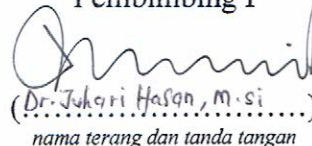 Pembimbing I
(Dr. Juhari Hasan, M.si)
nama terang dan tanda tangan